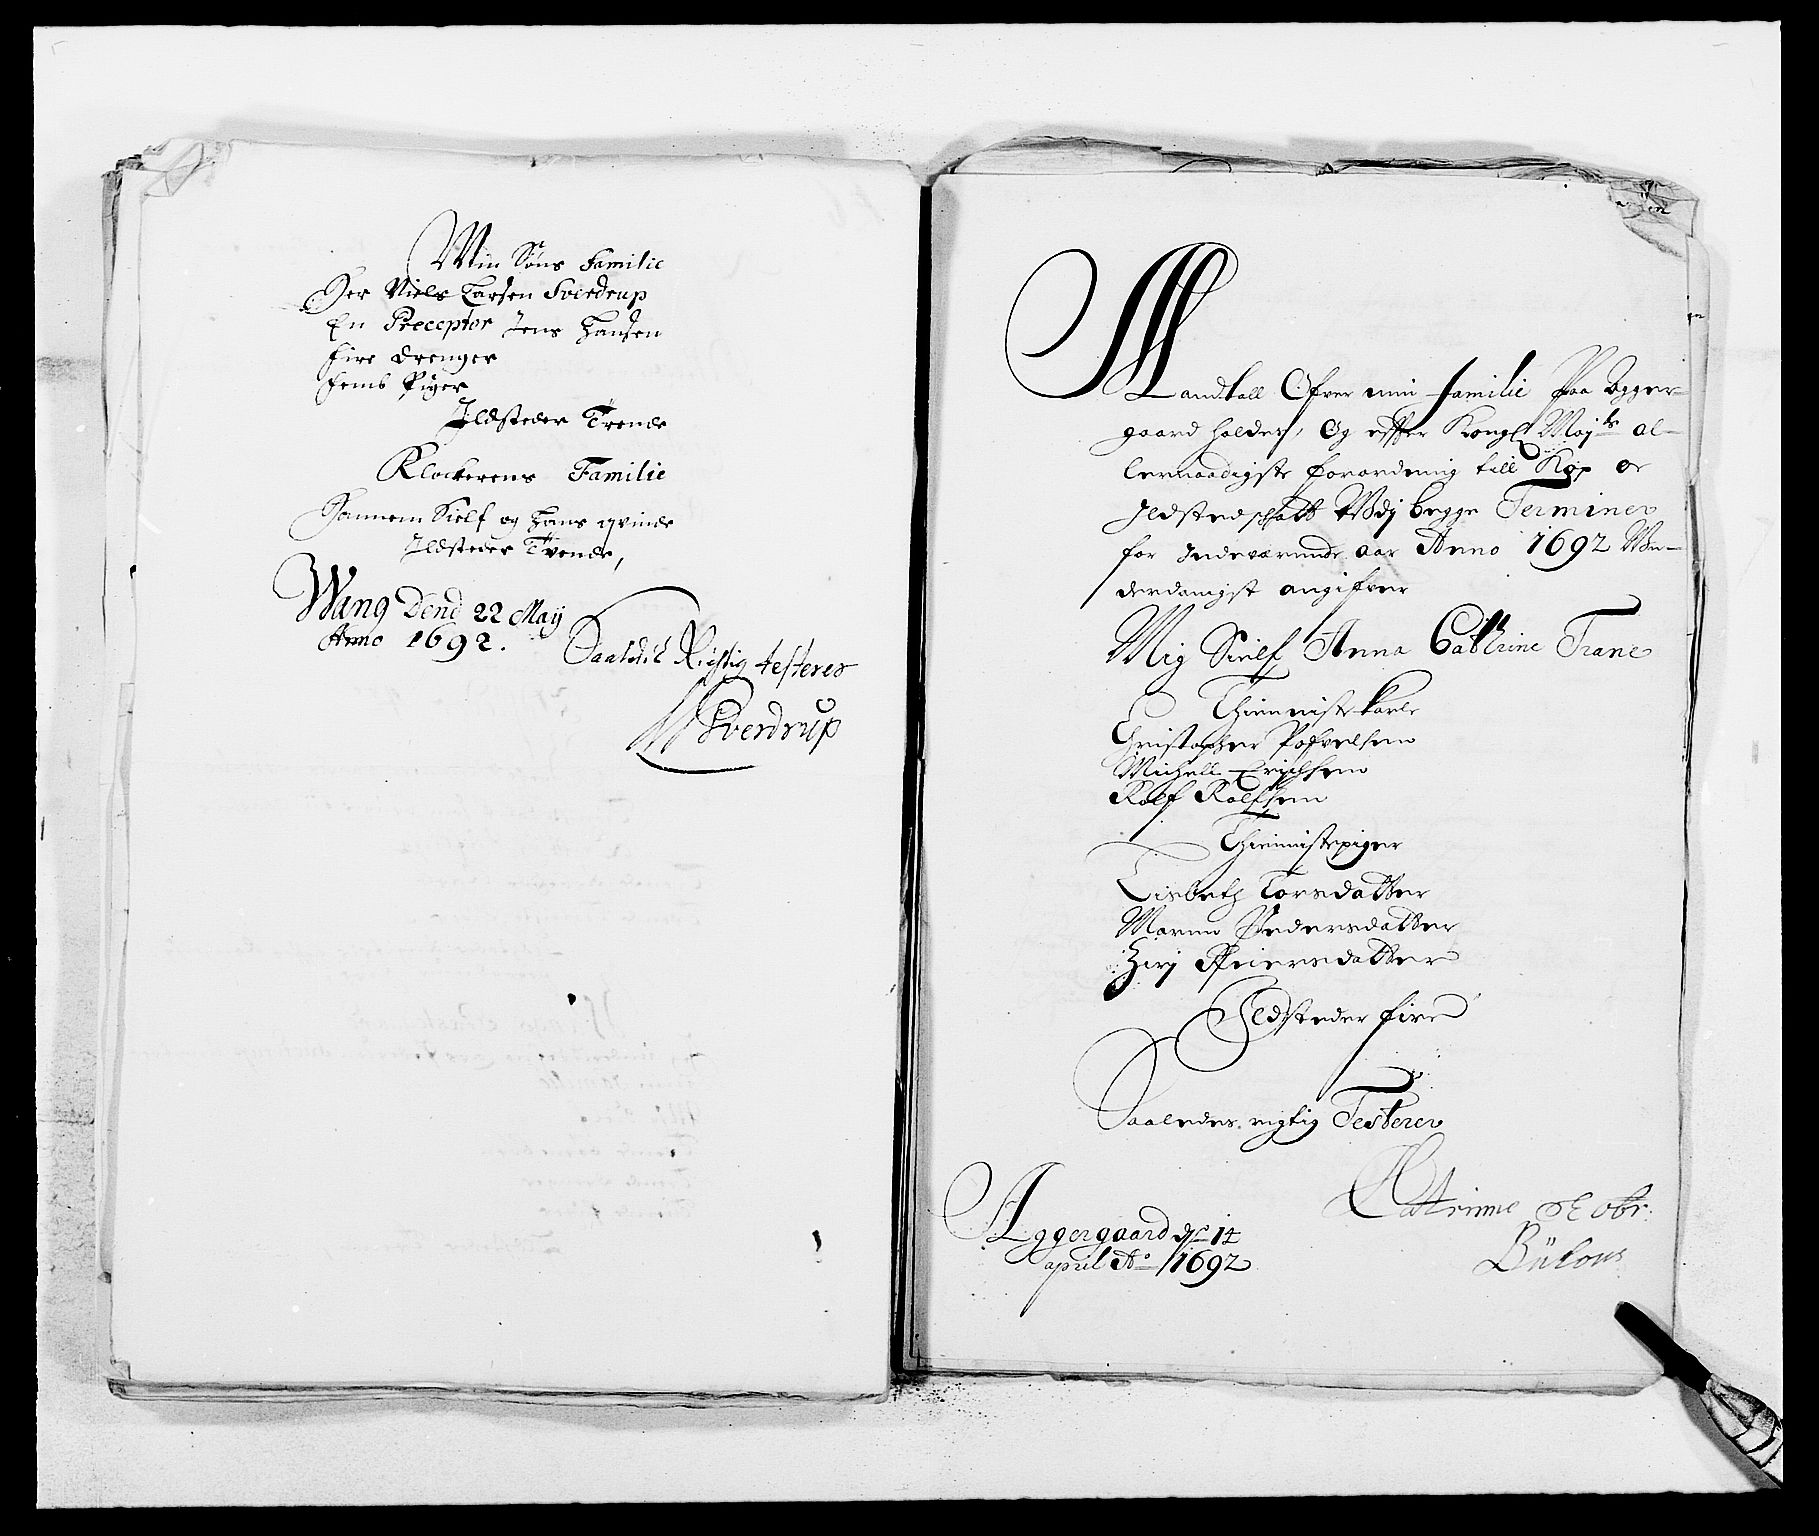 Min Søns Familie
Her Niels Larsen Sverdrup
En Preceptor Jens Hansen
fire drenger
femb Piger
Ildsteder Trende
Klockerens Familie
Hannem Sielf og Hans qvinde
Ildsteder Tvende,
Wang Dend 22 May
Anno 1692.
Saaledis Rigtig testeres
Sverdrup
Mandtall Ofver min familie Paa Agger-
gaard holdes, Og effter Kongl Mayts al-
lernaadigste forordning till Kop oc
Ildstedschatt Wdj begge Terminer
for Indeværende aar Anno 1692 Un-
derdanigst angifver
Mig Sielf Anna Cathrine Trane
Thienniste karle
Christopher Pofvelsen
Michell Erichsen
Rolf Rolfsen
Thiennistepiger
Lisbeth Torsdatter
Maren Pedersdatter
Sirj Peiersdatter
Ildsteder fire
Saaledes rigtig Testerer
Catrinne Sl obr:
Bülous
Aggergaard dn 14
april Ao 1692